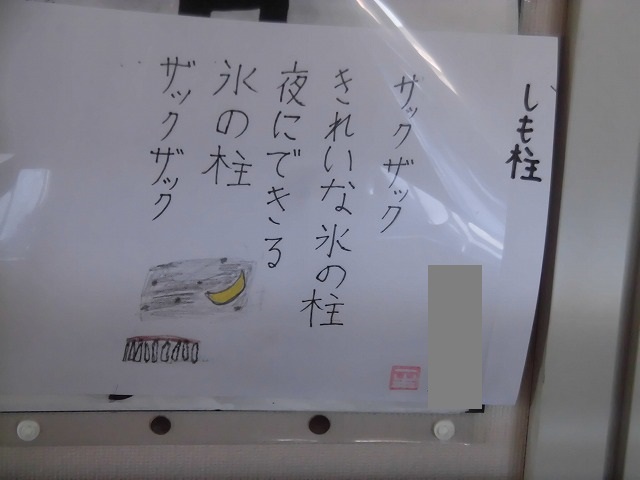 しも柱
ザックザック
きれいな氷の柱
夜にできる
氷の柱
ザックザック